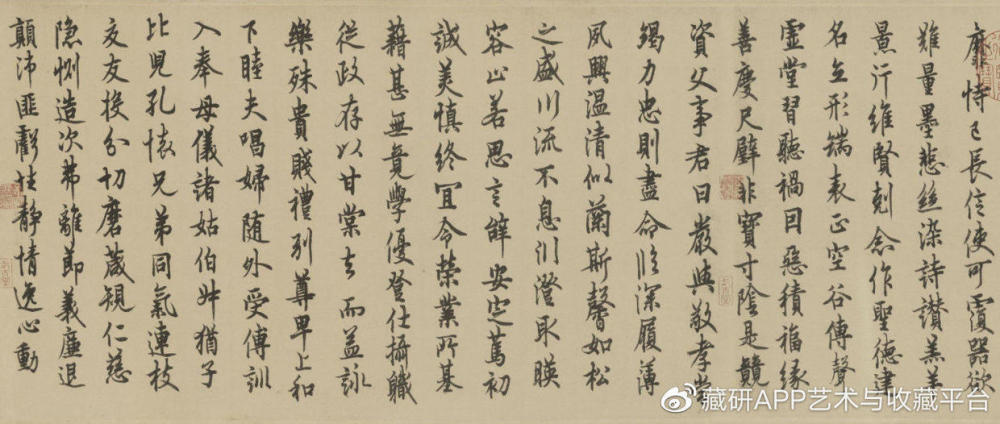 靡恃己長信使可覆器欲
難量墨悲絲染詩讃羔羊
景行維賢剋念作聖德建
名立形端表正空谷傳聲
虛堂習聽禍因惡積福緣
善慶尺璧非寶寸陰是競
資父事君曰嚴與敬孝當
竭力忠則盡命臨深履薄
夙興溫清似蘭斯馨如松
之盛川流不息淵澄取暎
容止若思言辭安定篤初
誠美慎終宜令榮業所基
藉甚無竟學優登仕攝職
從政存以甘棠去而益詠
樂殊貴賤禮別尊卑上和
下睦夫唱婦随外受傅訓
入奉母儀諸姑伯叔猶子
比兒孔懐兄弟同氣連枝
交友投分切磨箴規仁慈
隐惻造次弗離節義廉退
顛沛匪虧性靜情逸心動
藏研APP艺术与收藏平台